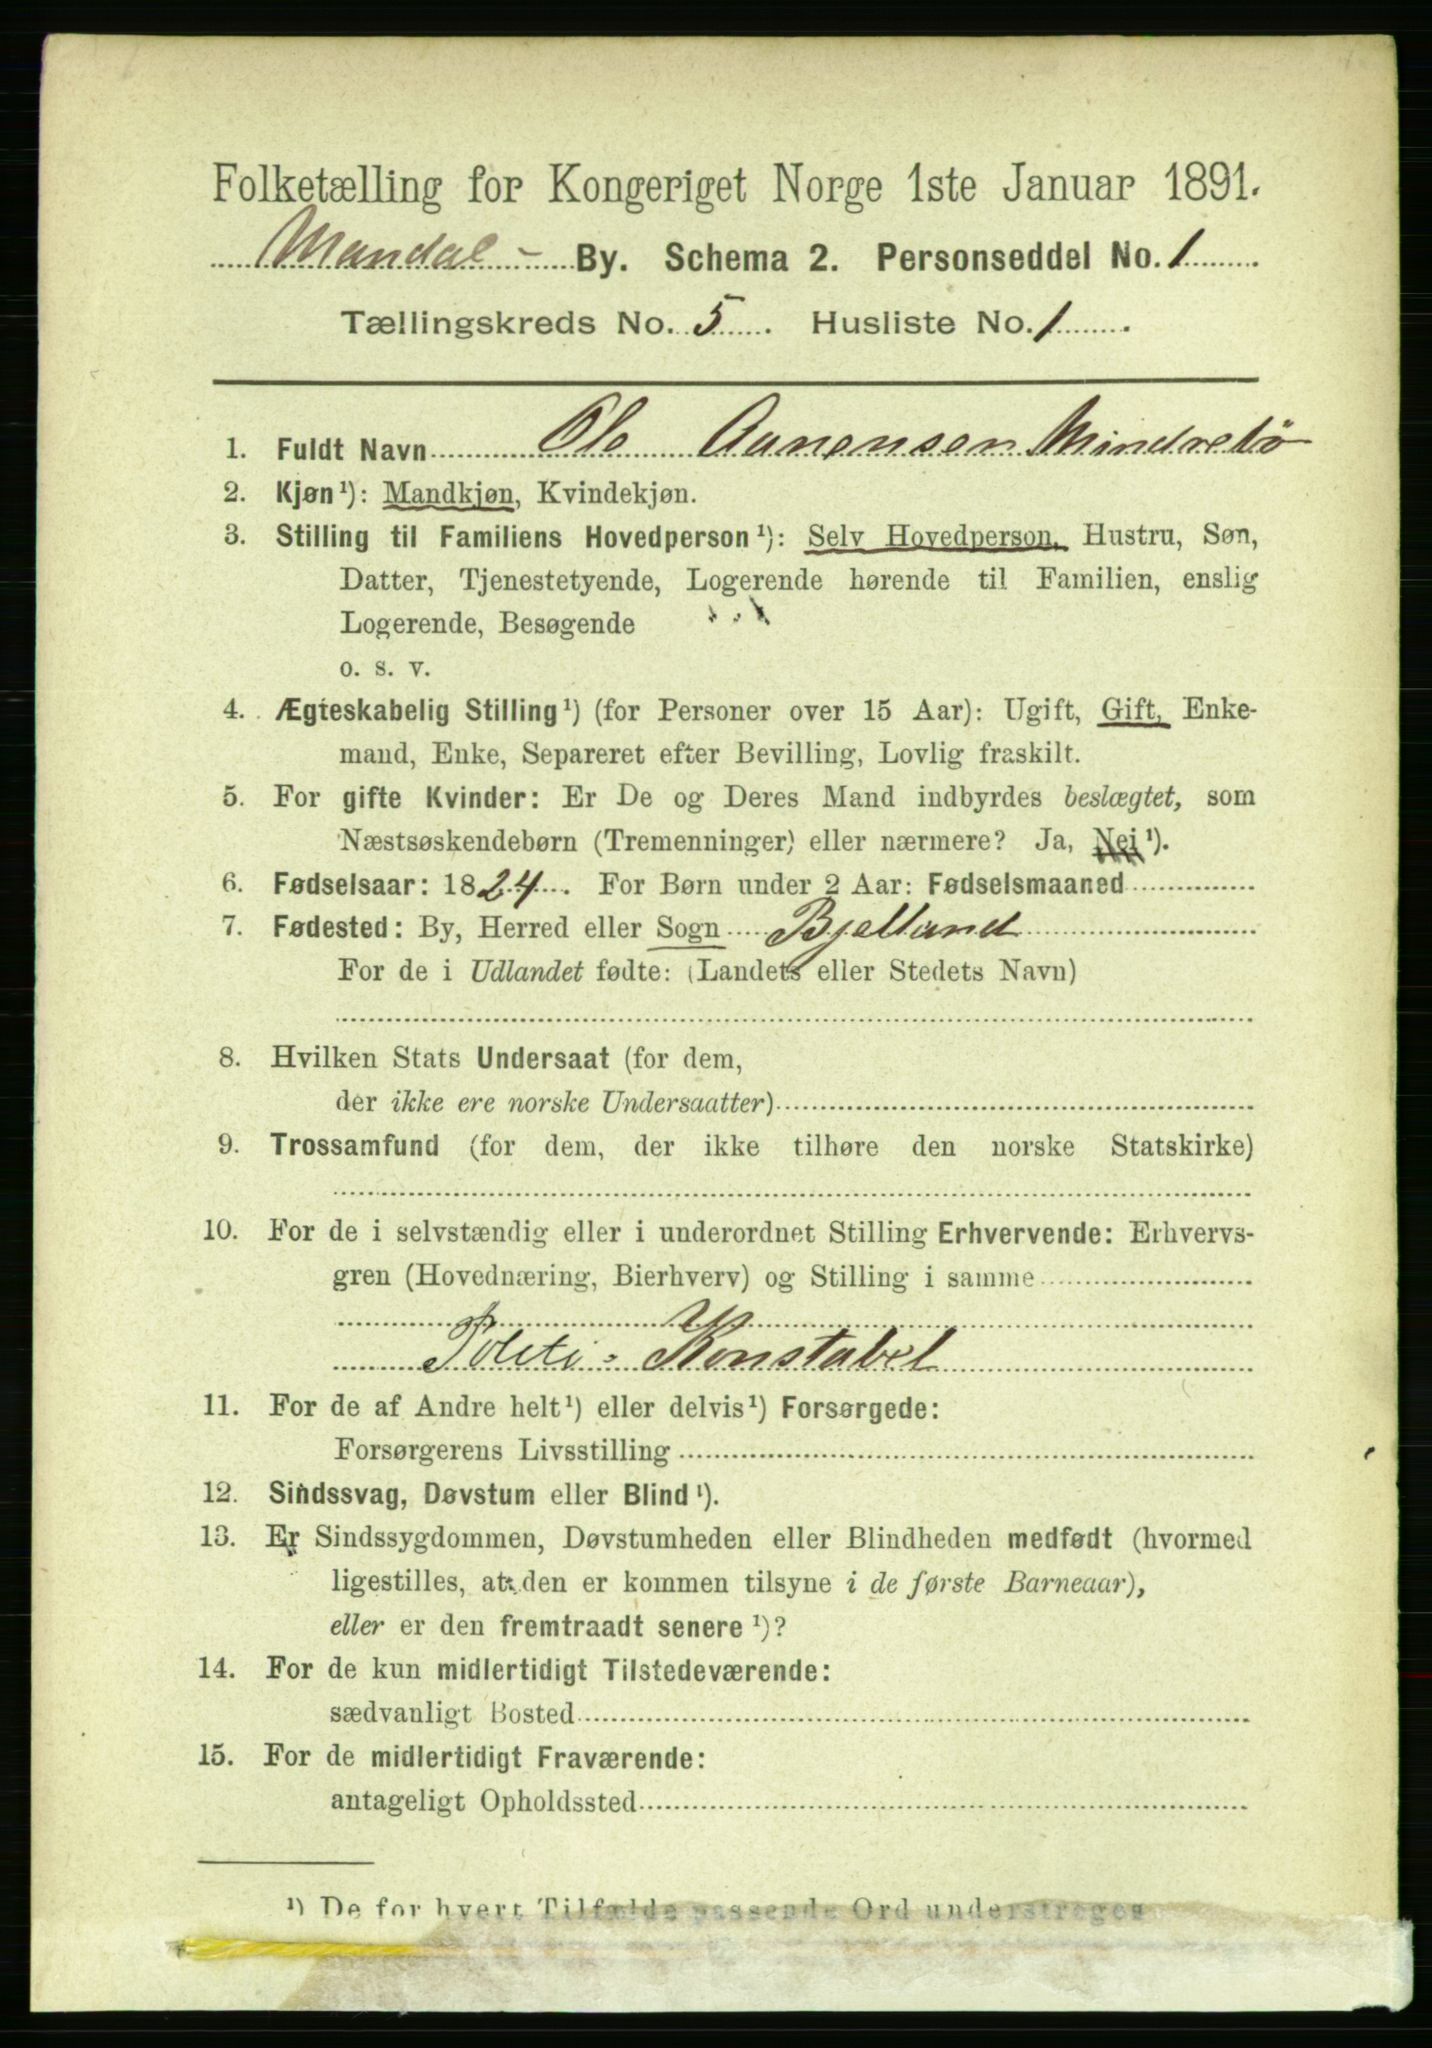 Folketælling for Kongeriget Norge 1ste Januar 1891.
Mandal - By. Schema 2. Personseddel No. 1
Tællingskreds No. 5. Husliste No. 1.
1. Fuldt Navn Ole Aanensen Mindrebø
2. Kjøn¹): Mandkjøn, Kvindekjøn.
3. Stilling til Familiens Hovedperson¹): Selv Hovedperson, Hustru, Søn,
Datter, Tjenestetyende, Logerende hørende til Familien, enslig
Logerende, Besøgende
o. s. v.
4. Ægteskabelig Stilling¹) (for Personer over 15 Aar): Ugift, Gift, Enke-
mand, Enke, Separeret efter Bevilling, Lovlig fraskilt.
5. For gifte Kvinder: Er De og Deres Mand indbyrdes beslægtet, som
Næstsøskendebørn (Tremenninger) eller nærmere? Ja, Nei¹).
6. Fødselsaar: 1824. For Børn under 2 Aar: Fødselsmaaned
7. Fødested: By, Herred eller Sogn Bjelland
For de i Udlandet fødte: (Landets eller Stedets Navn)
8. Hvilken Stats Undersaat (for dem,
der ikke ere norske Undersaatter)
9. Trossamfund (for dem, der ikke tilhøre den norske Statskirke)
10. For de i selvstændig eller i underordnet Stilling Erhvervende: Erhvervs-
gren (Hovednæring, Bierhverv) og Stilling i samme
Politi-Konstabel
11. For de af Andre helt¹) eller delvis¹) Forsørgede:
Forsørgerens Livsstilling
12. Sindssvag, Døvstum eller Blind¹).
13. Er Sindssygdommen, Døvstumheden eller Blindheden medfødt (hvormed
ligestilles, at den er kommen tilsyne i de første Barneaar),
eller er den fremtraadt senere¹)?
14. For de kun midlertidigt Tilstedeværende:
sædvanligt Bosted
15. For de midlertidigt Fraværende:
antageligt Opholdssted
¹) De for hvert Tilfælde passende Ord understreges